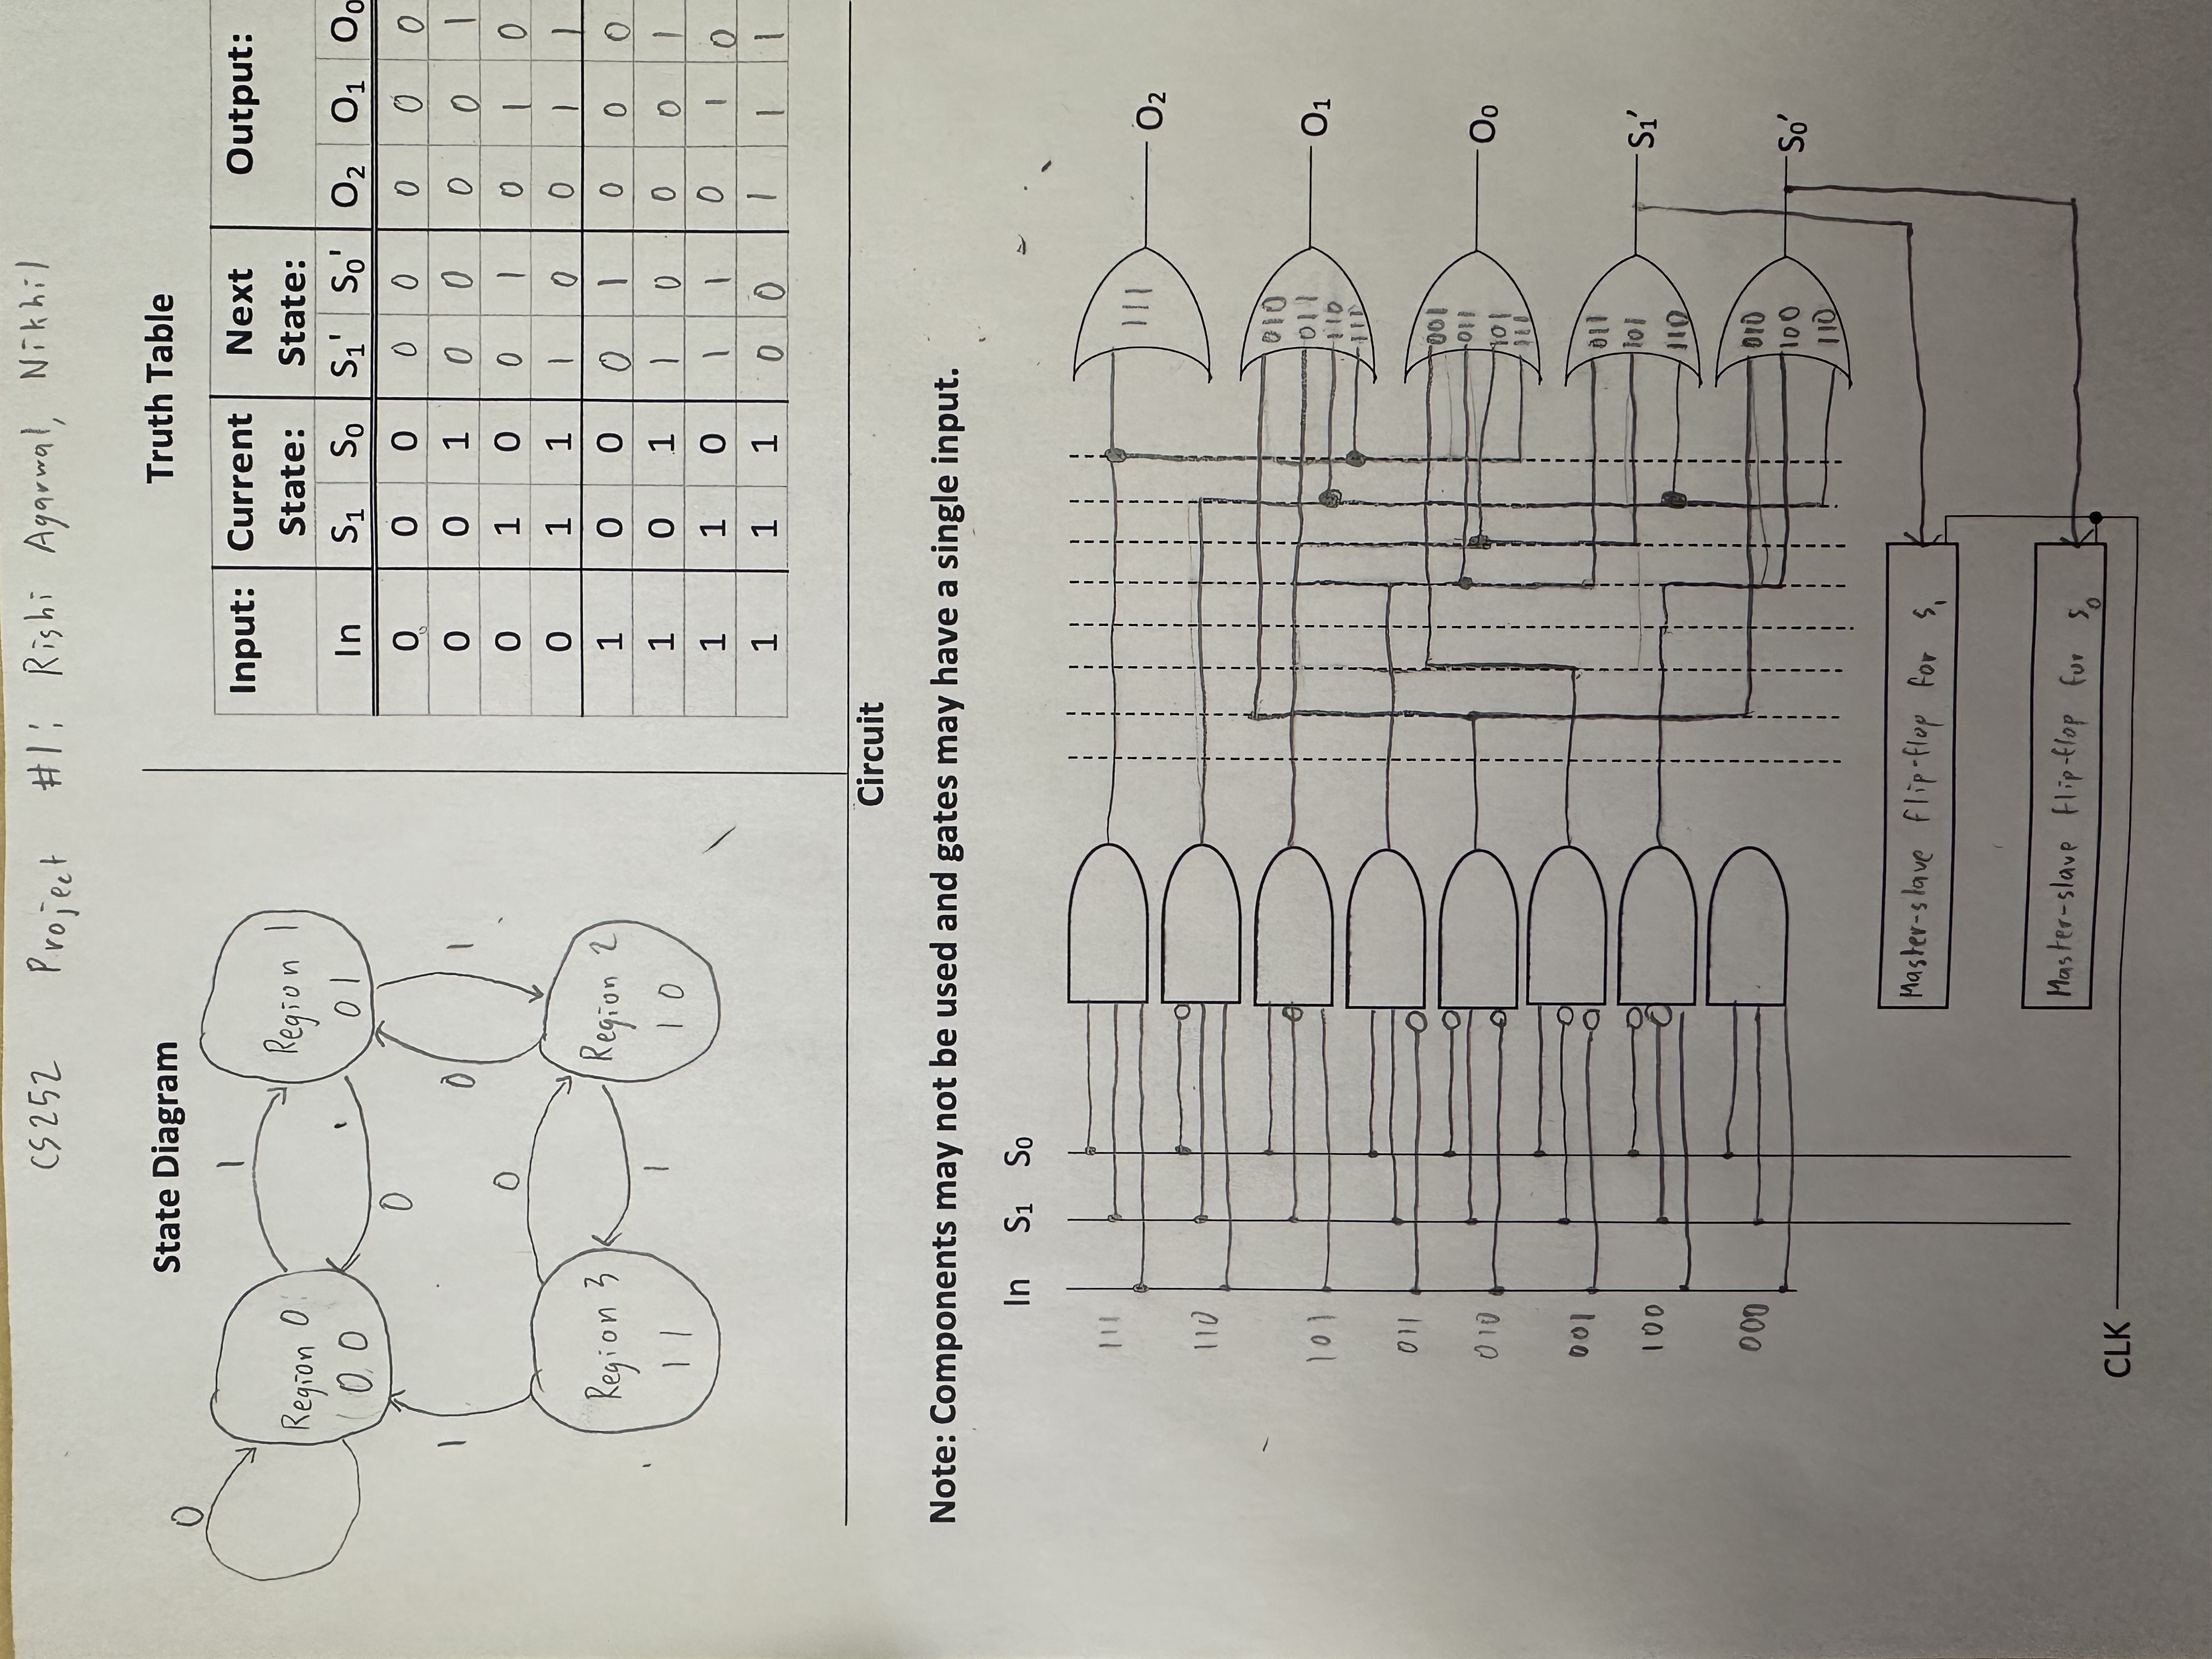 CS252 Project #1: Rishi Agarwal, Nikhil
State Diagram
0
1
Region 0
00
Region 1
01
0
1
0
1
0
Region 3
11
Region 2
10
1
Truth Table
Input: Current State: Next State: Output:
In S₁ S₀ S₁' S₀' O₂ O₁ O₀
0 0 0 0 0 0 0 0
0 0 1 0 0 0 0 1
0 1 0 0 1 0 1 0
0 1 1 1 0 0 1 1
1 0 0 0 1 0 0 0
1 0 1 1 0 0 0 1
1 1 0 1 1 0 1 0
1 1 1 0 0 1 1 1
Circuit
Note: Components may not be used and gates may have a single input.
In S₁ S₀
111
110
101
011
010
001
100
000
111
O₂
010
011
110
111
O₁
001
011
101
111
O₀
011
101
110
S₁'
010
100
110
S₀'
Master-slave flip-flop for S₁
Master-slave flip-flop for S₀
CLK